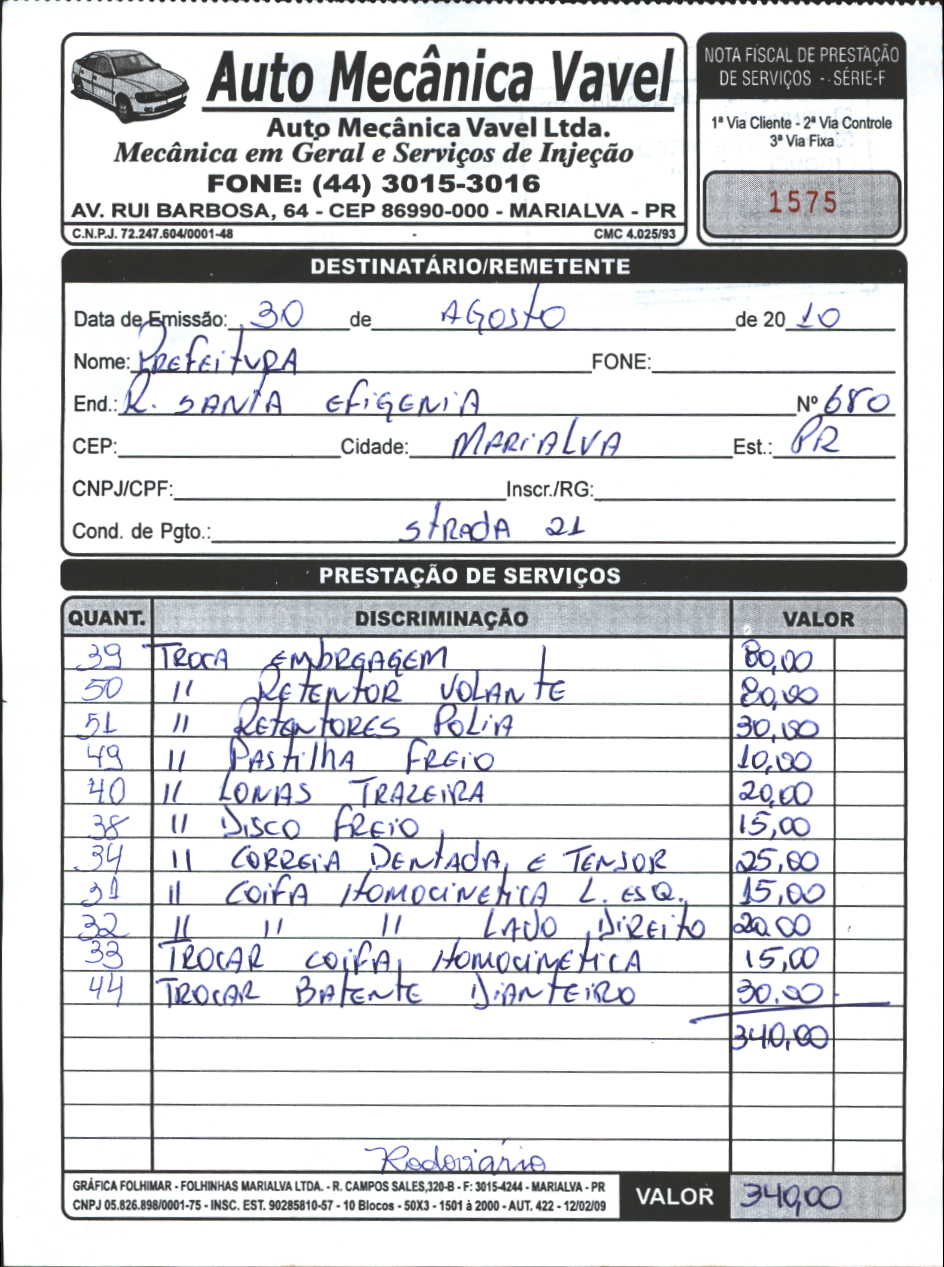 Auto Mecânica Vavel
Auto Mecânica Vavel Ltda.
Mecânica em Geral e Serviços de Injeção
FONE: (44) 3015-3016
AV. RUI BARBOSA, 64 - CEP 86990-000 - MARIALVA - PR
C.N.P.J. 72.247.604/0001-48 CMC 4.025/93
NOTA FISCAL DE PRESTAÇÃO
DE SERVIÇOS - SÉRIE-F
1ª Via Cliente - 2ª Via Controle
3ª Via Fixa
1575
DESTINATÁRIO/REMETENTE
Data de Emissão: 30 de AGOSTO de 2010
Nome: PREFEITURA FONE:
End.: R. SANTA EFIGENIA Nº 680
CEP: Cidade: MARIALVA Est.: PR
CNPJ/CPF: Inscr./RG:
Cond. de Pgto.: STRADA 21
PRESTAÇÃO DE SERVIÇOS
QUANT. DISCRIMINAÇÃO VALOR
39 TROCA EMBRGAGEM 80,00
50 11 RETENTOR VOLANTE 80,00
51 11 RETENTORES POLIA 30,00
49 11 PASTILHA FREIO 10,00
40 11 LONAS TRAZEIRA 20,00
38 11 DISCO FREIO 15,00
34 11 CORREIA DENTADA E TENSOR 25,00
31 11 COIFA HOMOCINETICA L. ESQ. 15,00
32 11 11 11 LADO DIREITO 20,00
33 TROCAR COIFA HOMOCINETICA 15,00
44 TROCAR BATENTE DIANTEIRO 30,00
340,00
Rodoviário
GRÁFICA FOLHIMAR - FOLHINHAS MARIALVA LTDA. - R. CAMPOS SALES, 320-B - F: 3015-4244 - MARIALVA - PR
CNPJ 05.826.898/0001-75 - INSC. EST. 90285810-57 - 10 Blocos - 50X3 - 1501 à 2000 - AUT. 422 - 12/02/09
VALOR 340,00